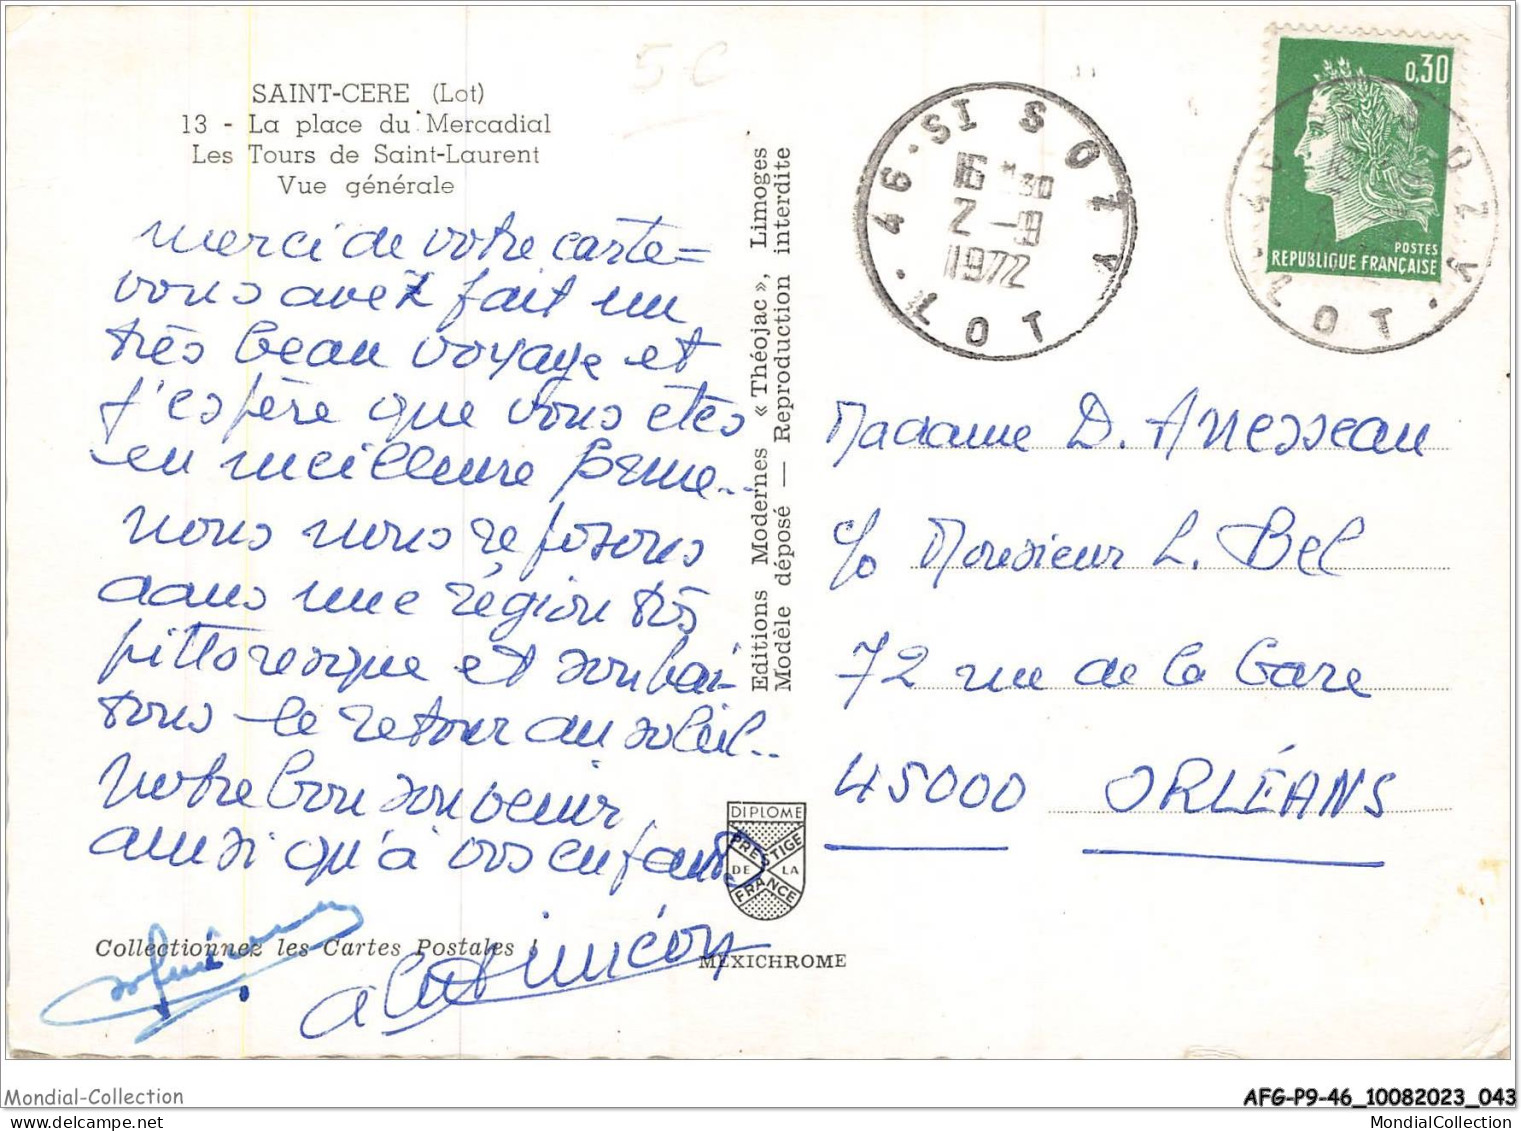 SAINT-CERE (Lot)
13 - La place du Mercadial
Les Tours de Saint-Laurent
Vue générale
merci de votre carte =
vous avez fait un
très beau voyage et
j'espère que vous etes
en meilleure forme...
nous nous reposons
dans une région très
pittoresque et souhai-
tons le retour au soleil...
notre bon souvenir
ainsi qu'à vos enfants
Collectionnez les Cartes Postales !
Editions Modernes « Théojac », Limoges
Modèle déposé — Reproduction interdite
DIPLOME
PRESTIGE
DE LA
FRANCE
MEXICHROME
46 - ST SOZY
16 H 30
2 - 9
1972
LOT
0,30
POSTES
REPUBLIQUE FRANÇAISE
Madame D. Anesseau
c/o Monsieur L. Bel
72 rue de la Gare
45000 ORLÉANS
Mondial-Collection
AFG-P9-46_10082023_043
MondialCollection